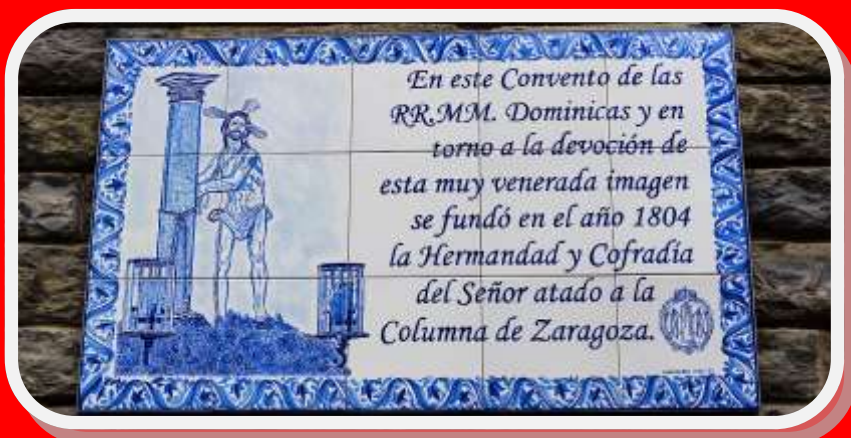 En este Convento de las
RR.MM. Dominicas y en
torno a la devoción de
esta muy venerada imagen
se fundó en el año 1804
la Hermandad y Cofradía
del Señor atado a la
Columna de Zaragoza.